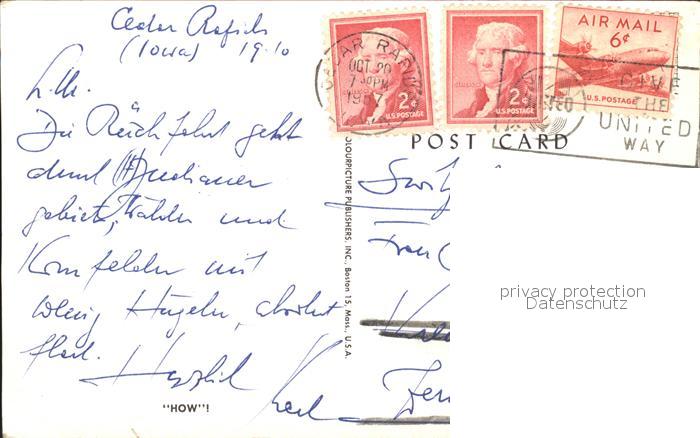 Cedar Rapids
(Iowa) 19.10
L. M.
Die Rückfahrt geht
durch (!) Indianer
gebiet, Wälder und
Kornfelder mit
wenig Hügeln, absolut
flach.
Herzlich
Karl
"HOW"!
COLOURPICTURE PUBLISHERS, INC., Boston 15, Mass., U.S.A.
CEDAR RAPIDS
OCT 20
7 30 PM
2¢
U.S. POSTAGE
2¢
U.S. POSTAGE
AIR MAIL
6¢
U.S. POSTAGE
GIVE
THE
UNITED
WAY
POST CARD
Frau
privacy protection
Datenschutz